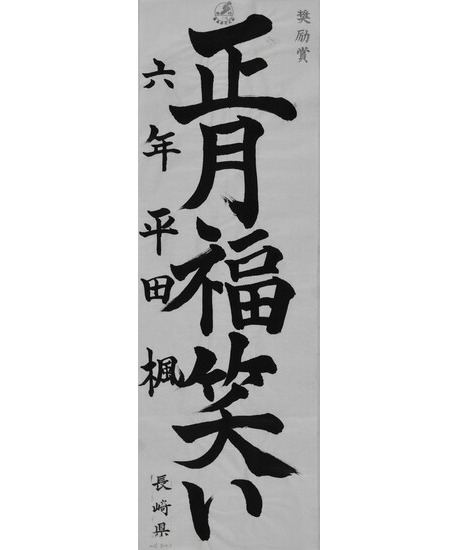 奨励賞
正月福笑い
六年平田楓
長崎県